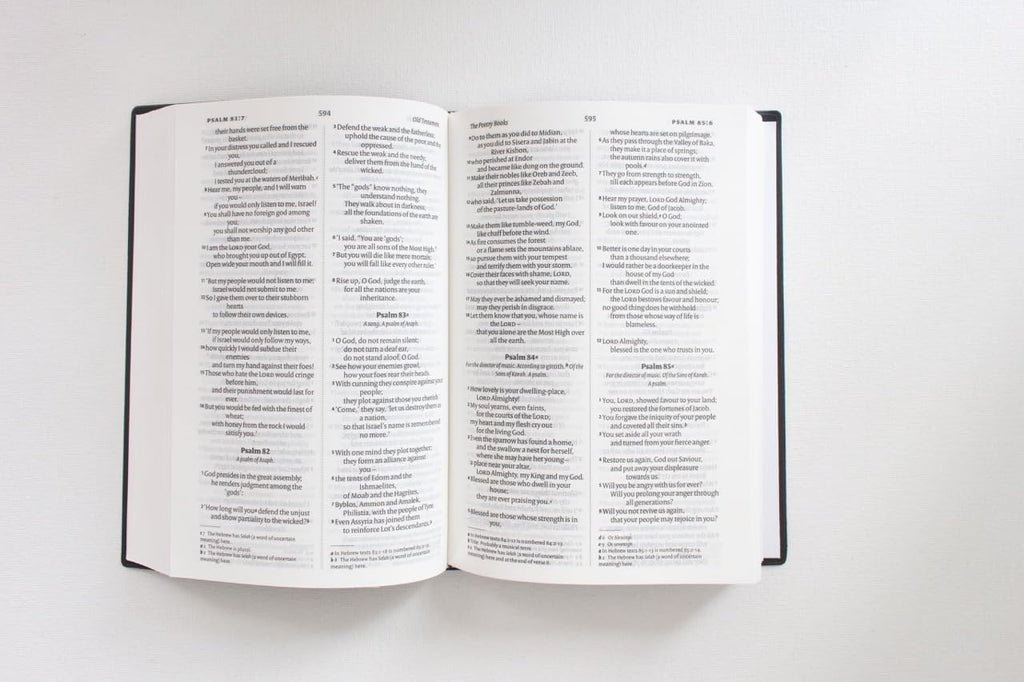 PSALM 81:7
594
Old Testament
their hands were set free from the
basket.
7 In your distress you called and I rescued
you,
I answered you out of a
thundercloud;
I tested you at the waters of Meribah.c
8 Hear me, my people, and I will warn
you –
if you would only listen to me, Israel!
9 You shall have no foreign god among
you;
you shall not worship any god other
than me.
10 I am the LORD your God,
who brought you up out of Egypt.
Open wide your mouth and I will fill it.
11 'But my people would not listen to me;
Israel would not submit to me.
12 So I gave them over to their stubborn
hearts
to follow their own devices.
13 'If my people would only listen to me,
if Israel would only follow my ways,
14 how quickly I would subdue their
enemies
and turn my hand against their foes!
15 Those who hate the LORD would cringe
before him,
and their punishment would last for
ever.
16 But you would be fed with the finest of
wheat;
with honey from the rock I would
satisfy you.'
Psalm 82
A psalm of Asaph.
1 God presides in the great assembly;
he renders judgment among the
'gods':
2 'How long will you defend the unjust
and show partiality to the wicked?
c 7 The Hebrew has Selah (a word of uncertain
meaning) here.
a 2 The Hebrew is plural.
b 2 The Hebrew has Selah (a word of uncertain
meaning) here.
3 Defend the weak and the fatherless;
uphold the cause of the poor and the
oppressed.
4 Rescue the weak and the needy;
deliver them from the hand of the
wicked.
5 'The "gods" know nothing, they
understand nothing.
They walk about in darkness;
all the foundations of the earth are
shaken.
6 'I said, "You are 'gods';
you are all sons of the Most High."
7 But you will die like mere mortals;
you will fall like every other ruler.'
8 Rise up, O God, judge the earth,
for all the nations are your
inheritance.
Psalm 83a
A song. A psalm of Asaph.
1 O God, do not remain silent;
do not turn a deaf ear,
do not stand aloof, O God.
2 See how your enemies growl,
how your foes rear their heads.
3 With cunning they conspire against your
people;
they plot against those you cherish.
4 'Come,' they say, 'let us destroy them as
a nation,
so that Israel's name is remembered
no more.'
5 With one mind they plot together;
they form an alliance against
you –
6 the tents of Edom and the
Ishmaelites,
of Moab and the Hagrites,
7 Byblos, Ammon and Amalek,
Philistia, with the people of Tyre.
8 Even Assyria has joined them
to reinforce Lot's descendants.b
a In Hebrew texts 83:1-18 is numbered 83:2-19.
b 8 The Hebrew has Selah (a word of uncertain
meaning) here.
The Poetry Books
595
PSALM 85:6
9 Do to them as you did to Midian,
as you did to Sisera and Jabin at the
River Kishon,
10 who perished at Endor
and became like dung on the ground.
11 Make their nobles like Oreb and Zeeb,
all their princes like Zebah and
Zalmunna,
12 who said, 'Let us take possession
of the pasture-lands of God.'
13 Make them like tumble-weed, my God,
like chaff before the wind.
14 As fire consumes the forest
or a flame sets the mountains ablaze,
15 so pursue them with your tempest
and terrify them with your storm.
16 Cover their faces with shame, LORD,
so that they will seek your name.
17 May they ever be ashamed and dismayed;
may they perish in disgrace.
18 Let them know that you, whose name is
the LORD –
that you alone are the Most High over
all the earth.
Psalm 84a
For the director of music. According to gittith.b Of the
Sons of Korah. A psalm.
1 How lovely is your dwelling-place,
LORD Almighty!
2 My soul yearns, even faints,
for the courts of the LORD;
my heart and my flesh cry out
for the living God.
3 Even the sparrow has found a home,
and the swallow a nest for herself,
where she may have her young –
a place near your altar,
LORD Almighty, my King and my God.
4 Blessed are those who dwell in your
house;
they are ever praising you.c
5 Blessed are those whose strength is in
you,
a In Hebrew texts 84:1-12 is numbered 84:2-13.
b Title: Probably a musical term
c 4 The Hebrew has Selah (a word of uncertain
meaning) here and at the end of verse 8.
whose hearts are set on pilgrimage.
6 As they pass through the Valley of Baka,
they make it a place of springs;
the autumn rains also cover it with
pools.d
7 They go from strength to strength,
till each appears before God in Zion.
8 Hear my prayer, LORD God Almighty;
listen to me, God of Jacob.
9 Look on our shield,e O God;
look with favour on your anointed
one.
10 Better is one day in your courts
than a thousand elsewhere;
I would rather be a doorkeeper in the
house of my God
than dwell in the tents of the wicked.
11 For the LORD God is a sun and shield;
the LORD bestows favour and honour;
no good thing does he withhold
from those whose way of life is
blameless.
12 LORD Almighty,
blessed is the one who trusts in you.
Psalm 85a
For the director of music. Of the Sons of Korah.
A psalm.
1 You, LORD, showed favour to your land;
you restored the fortunes of Jacob.
2 You forgave the iniquity of your people
and covered all their sins.b
3 You set aside all your wrath
and turned from your fierce anger.
4 Restore us again, God our Saviour,
and put away your displeasure
towards us.
5 Will you be angry with us for ever?
Will you prolong your anger through
all generations?
6 Will you not revive us again,
that your people may rejoice in you?
d 6 Or blessings
e 9 Or sovereign
a In Hebrew texts 85:1-13 is numbered 85:2-14.
b 2 The Hebrew has Selah (a word of uncertain
meaning) here.